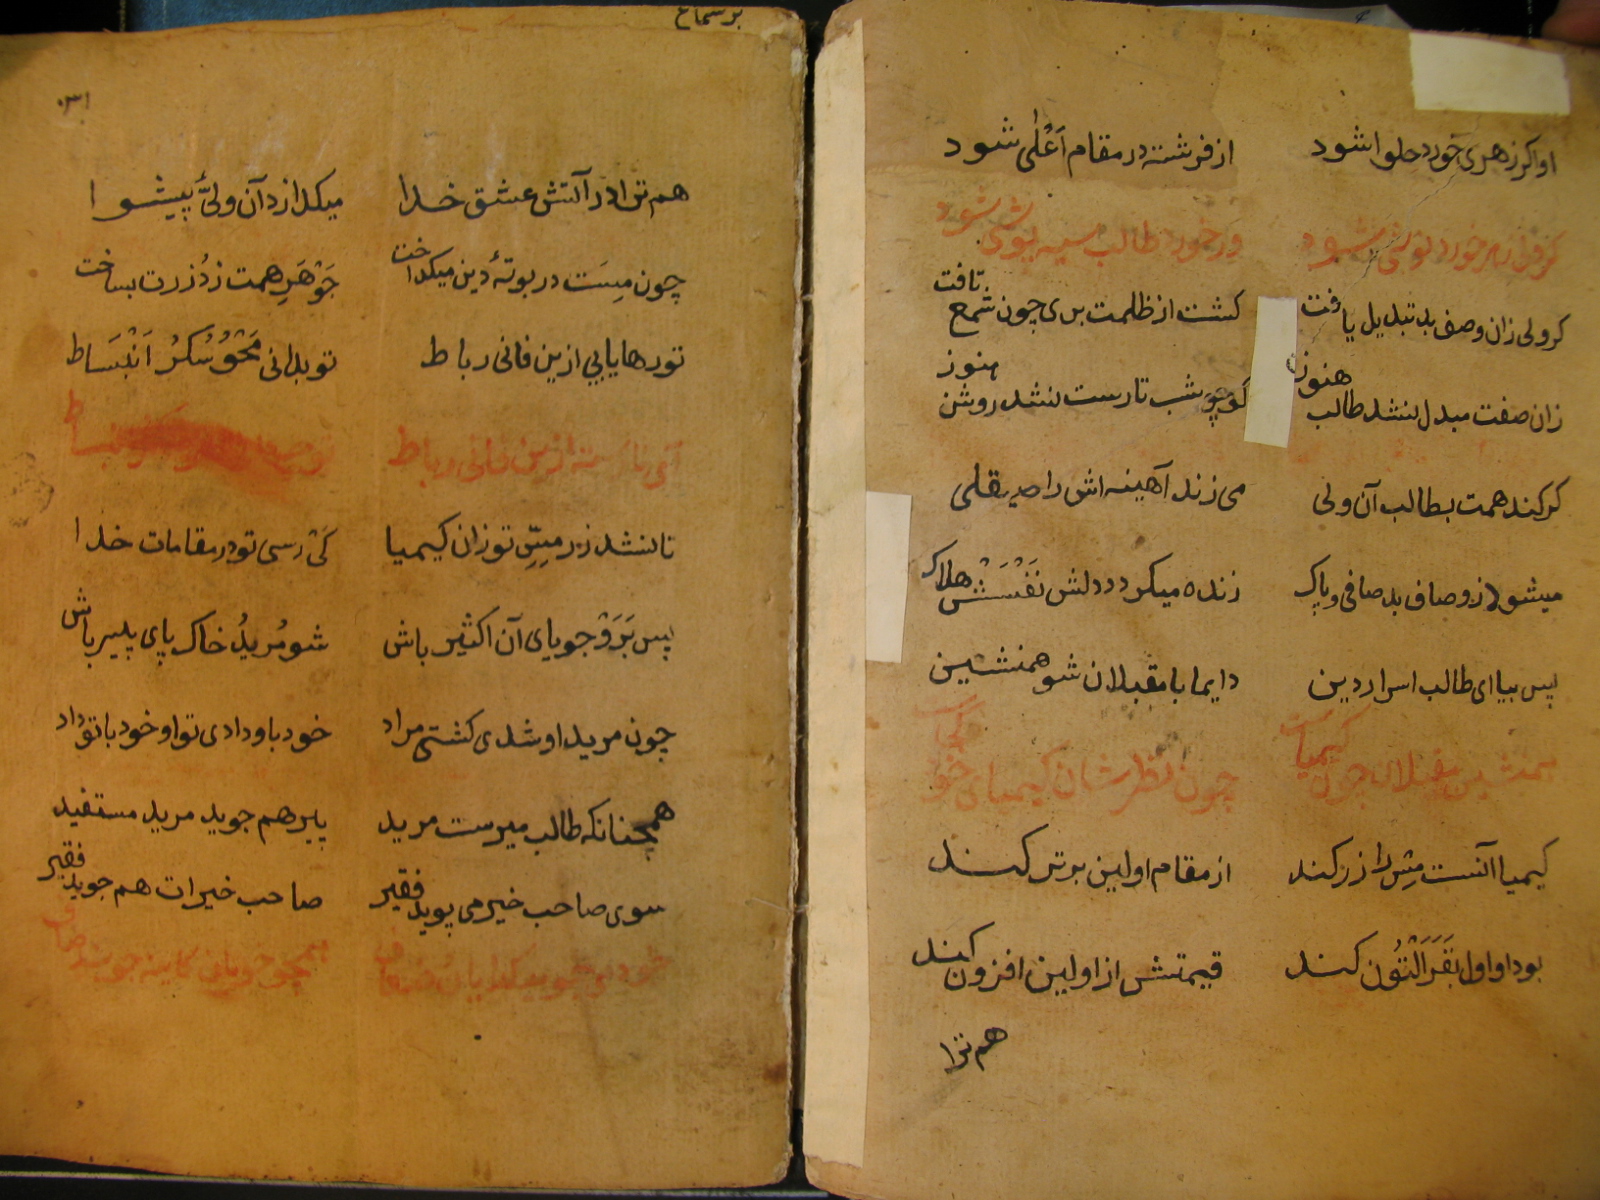 او اکر زهری خورد حلوا شود از فرشته در مقام اَعْلٰی شود
کر ولی زهر خورد نوشی شود ور خورد طالب سیه پوشی شود
کر ولی زان وصف بد تبدیل یافت کشت از ظلمت بری چون شمع تافت
زان صفت مبدل نشد طالب هنوز کو چو شب تارست نشد روشن هنوز
کر کند همت بطالب آن ولی می زند آهینه اش را صیقلی
میشود از وصاف بد صافی و پاک زنده میکردد دلش نَفْسَشْ هلاک
پس بیا ای طالب اسرار دین دایما با مقبلان شو همنشین
همنشین مقبلان چون کیمیاست چون نظرشان کیمیای خود
کیمیا آنست مِسْ را زر کند از مقام اولین برتر کند
بود او اول بَقَرَ اَلْتُون کند قیمتش از اولین افزون کند
هم ترا
بر سماح
۰۳۱
هم ترا در آتش عشق خدا میکدازد آن ولیٔ پیشوا
چون مِسَت در بوتهٔ دین میکداخت جَوْهَرِ همت زدُ زرت بساخت
تو رها یابی ازین فانی رباط تو بدانی مَحْوُ سُکرُ اَنْبَساط
ازین فانی رباط
تا نشد زر مِسِّ تو زان کیمیا کَیْ رسی تو در مقامات خدا
پس بَرَوْ جویای آن اکثیر باش شو مُریدُ خاک پای پیر باش
چون مرید او شدی کشتی مراد خود باو دادی تو او خود با تو داد
همچنانکه طالب میرست مرید پیر هم جوید مرید مستفید
سوی صاحب خیر می پوید فقیر صاحب خیرات هم جوید فقیر
همچو خوبانی کاینه جویند صاف